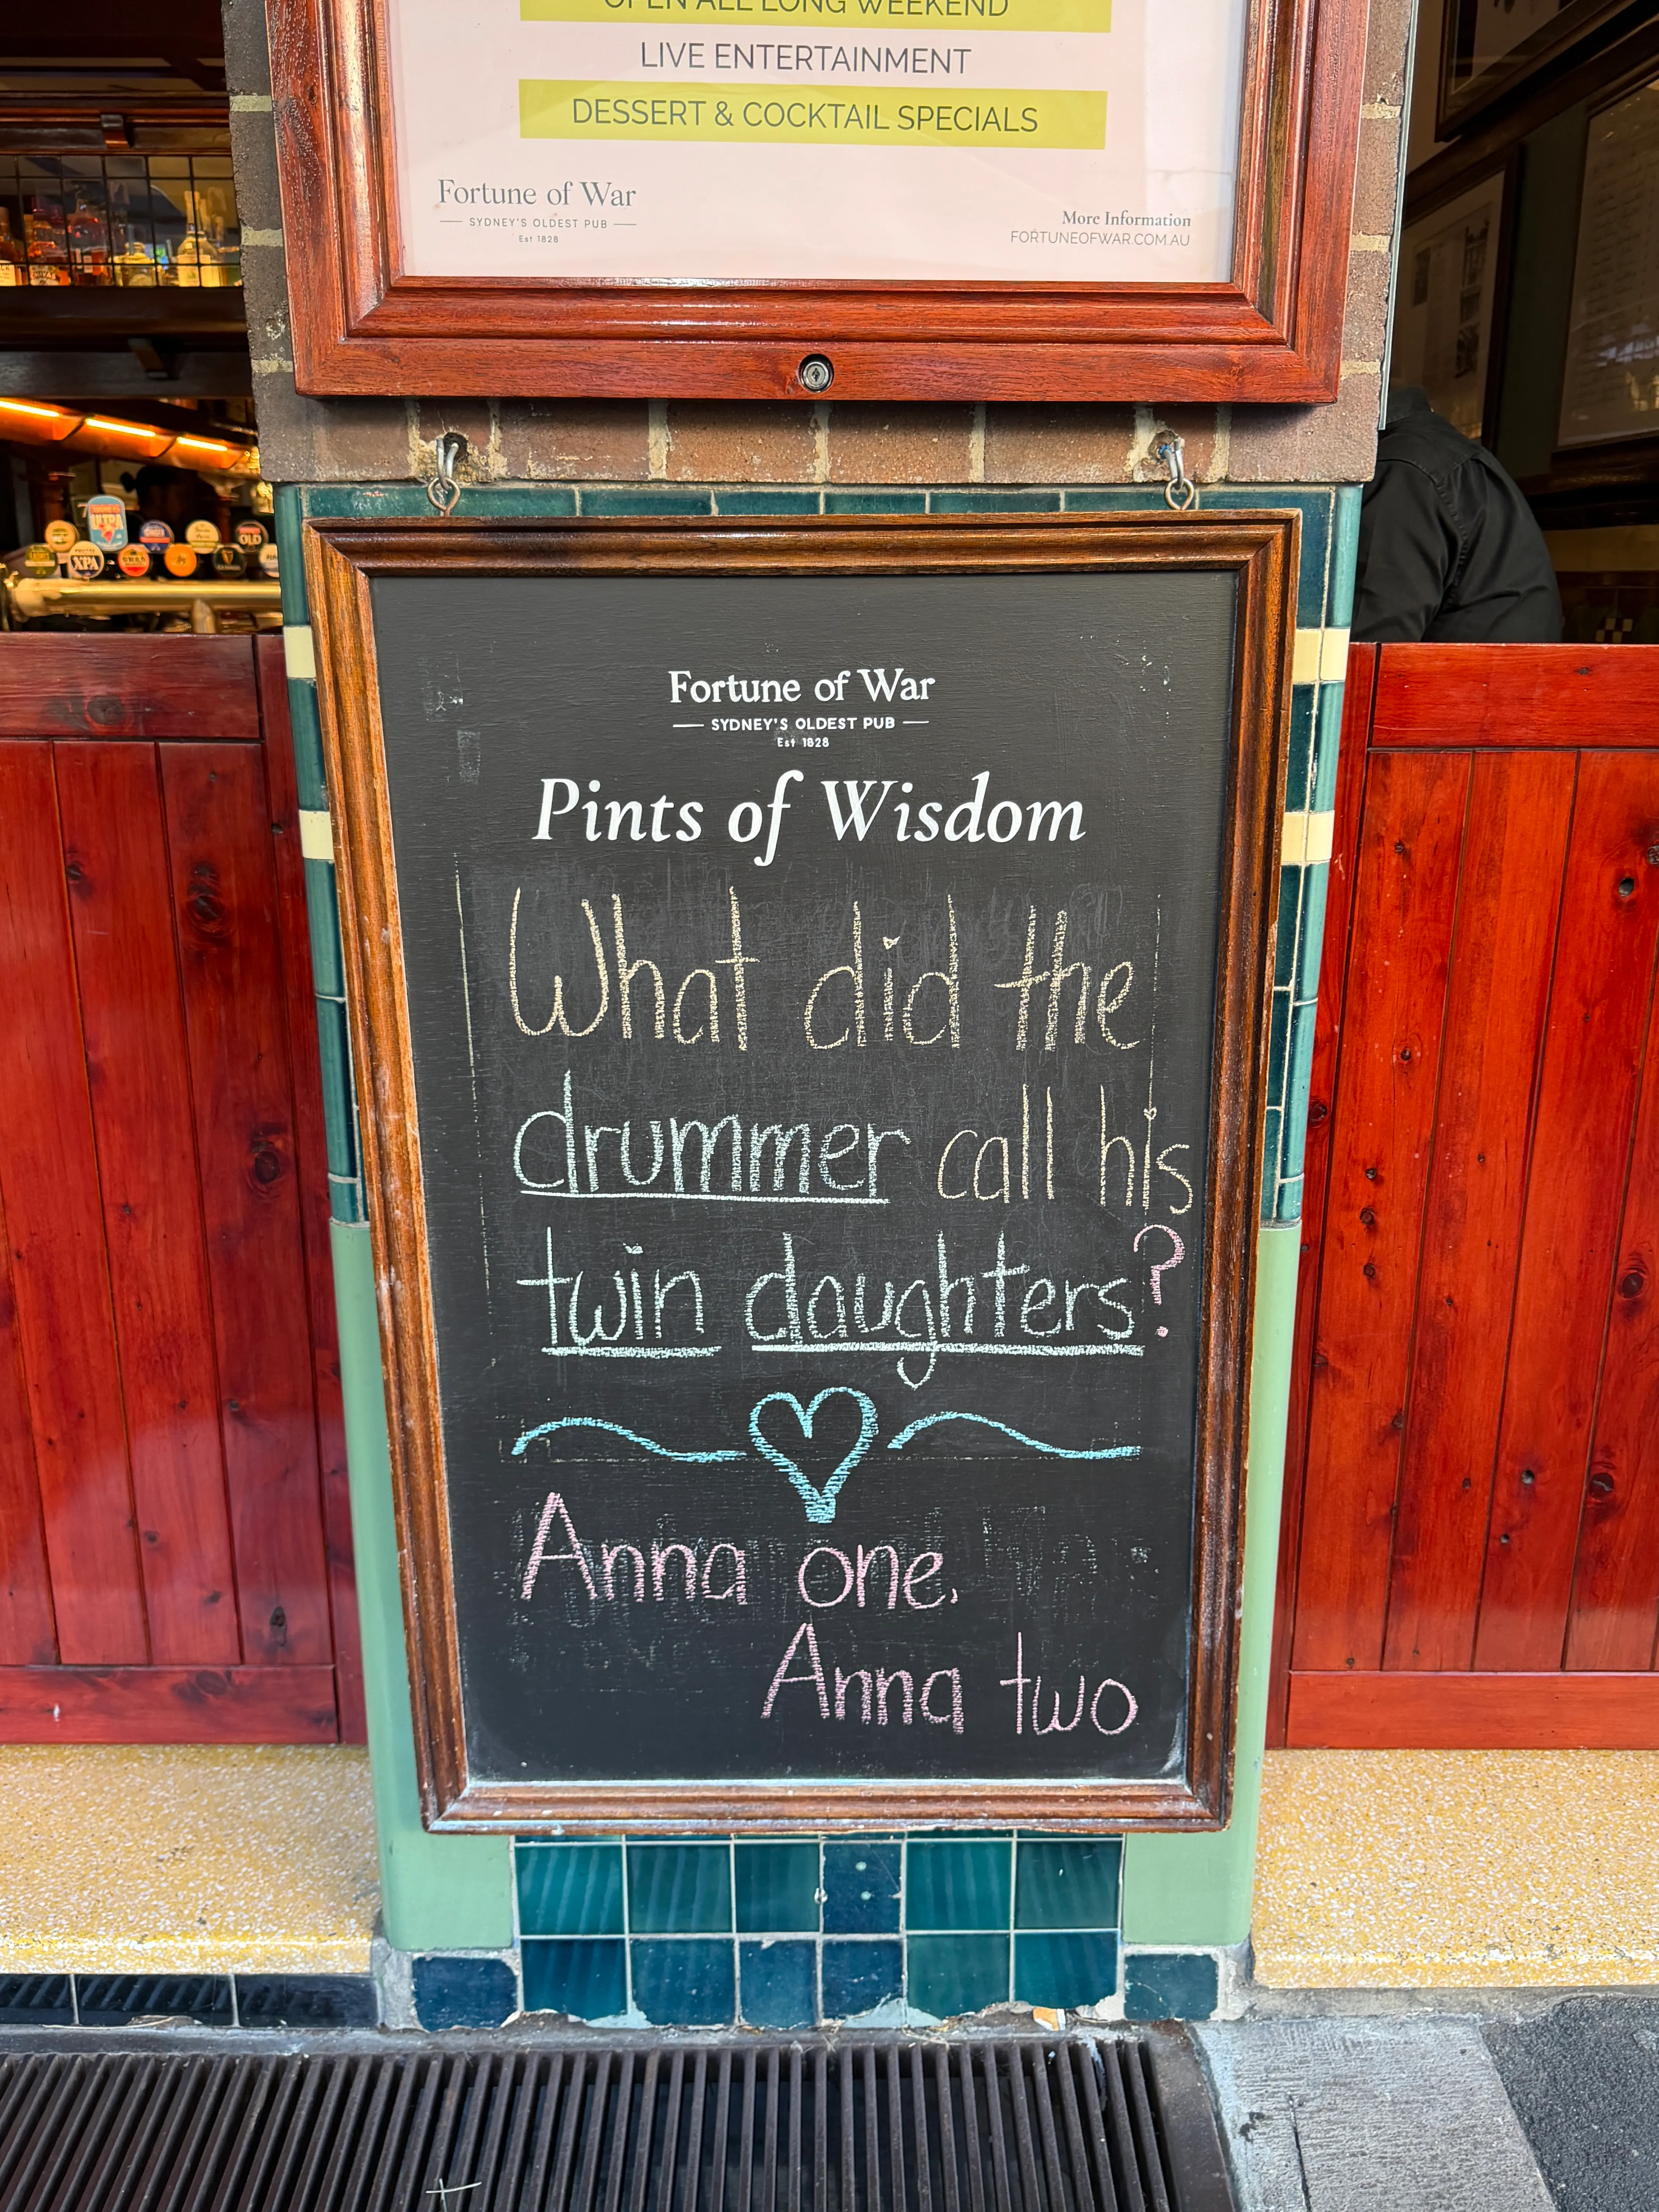 OPEN ALL LONG WEEKEND
LIVE ENTERTAINMENT
DESSERT & COCKTAIL SPECIALS
Fortune of War
SYDNEY'S OLDEST PUB
Est 1828
More Information
FORTUNEOFWAR.COM.AU
XPA
OLD
Fortune of War
SYDNEY'S OLDEST PUB
Est 1828
Pints of Wisdom
What did the
drummer call his
twin daughters?
Anna one.
Anna two